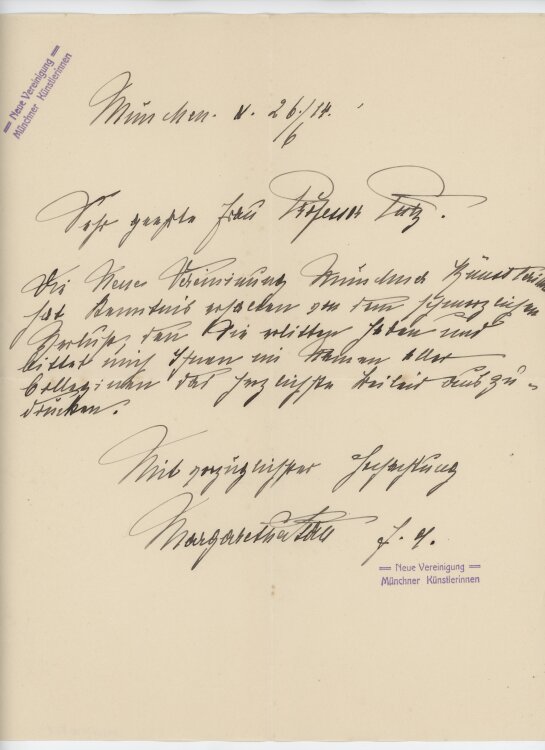 = Neue Vereinigung =
Münchner Künstlerinnen
München. d. 26./14.
/6
Sehr geehrte Frau Professor Putz.
Die Neue Vereinigung Münchner Künstlerinnen
hat Kenntnis erhalten von dem schmerzlichen
Verlust, den Sie erlitten haben und
bittet mich Ihnen im Namen aller
Colleginnen das herzlichste Beileid auszu-
drücken.
Mit vorzüglichster Hochachtung
Margarethe
= Neue Vereinigung =
Münchner Künstlerinnen